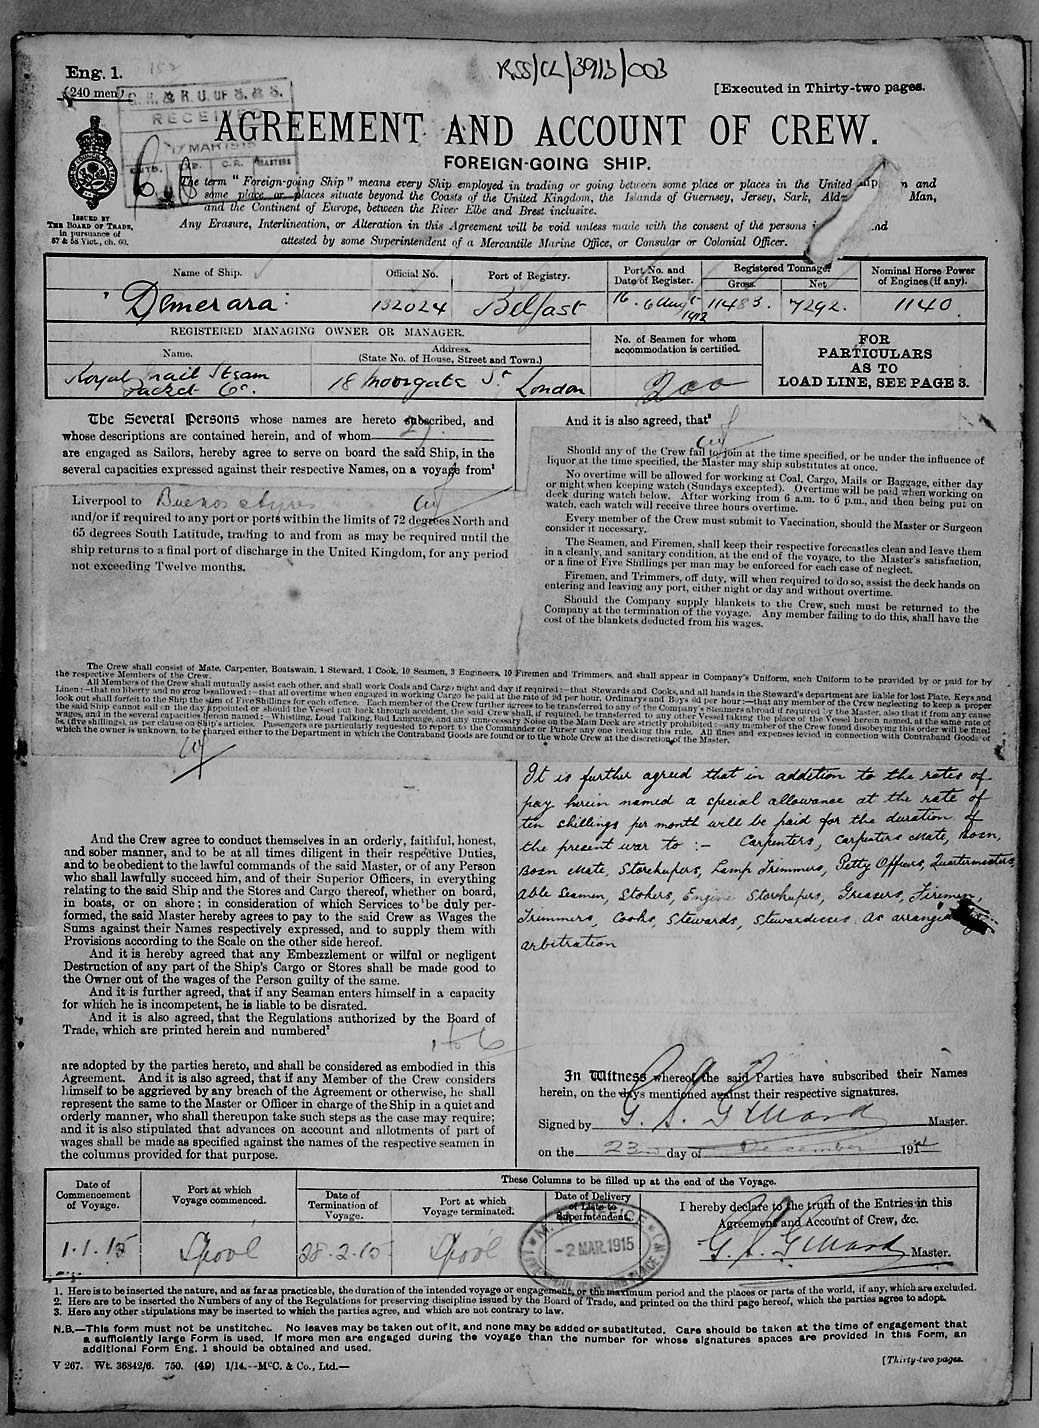 Eng. 1.
(240 men)
RSS/CL/39/3/003
[Executed in Thirty-two pages.
RECEIVED
17 MAR 1915
AGREEMENT AND ACCOUNT OF CREW.
FOREIGN-GOING SHIP.
ISSUED BY
THE BOARD OF TRADE,
in pursuance of
57 & 58 Vict., ch. 60.
The term "Foreign-going Ship" means every Ship employed in trading or going between some place or places in the United and
some place or places situate beyond the Coasts of the United Kingdom, the Islands of Guernsey, Jersey, Sark, Man,
and the Continent of Europe, between the River Elbe and Brest inclusive.
Any Erasure, Interlineation, or Alteration in this Agreement will be void unless made with the consent of the persons
attested by some Superintendent of a Mercantile Marine Office, or Consular or Colonial Officer.
Name of Ship. Official No. Port of Registry. Port No. and Date of Register. Registered Tonnage. Gross. Net. Nominal Horse Power of Engines (if any).
Demerara 132024 Belfast 16. 6 Augt 1912 11483. 7292. 1140
REGISTERED MANAGING OWNER OR MANAGER.
Name. Address. (State No. of House, Street and Town.)
No. of Seamen for whom accommodation is certified.
FOR
PARTICULARS
AS TO
LOAD LINE, SEE PAGE 3.
Royal Mail Steam
Packet Co. 18 Moorgate St. London 200
The Several Persons whose names are hereto subscribed, and
whose descriptions are contained herein, and of whom
are engaged as Sailors, hereby agree to serve on board the said Ship, in the
several capacities expressed against their respective Names, on a voyage from¹
Liverpool to Buenos Ayres
and/or if required to any port or ports within the limits of 72 degrees North and
65 degrees South Latitude, trading to and from as may be required until the
ship returns to a final port of discharge in the United Kingdom, for any period
not exceeding Twelve months.
And it is also agreed, that³
Should any of the Crew fail to join at the time specified, or be under the influence of
liquor at the time specified, the Master may ship substitutes at once.
No overtime will be allowed for working at Coal, Cargo, Mails or Baggage, either day
or night when keeping watch (Sundays excepted). Overtime will be paid when working on
deck during watch below. After working from 6 a.m. to 6 p.m., and then being put on
watch, each watch will receive three hours overtime.
Every member of the Crew must submit to Vaccination, should the Master or Surgeon
consider it necessary.
The Seamen, and Firemen, shall keep their respective forecastles clean and leave them
in a cleanly, and sanitary condition, at the end of the voyage, to the Master's satisfaction,
or a fine of Five Shillings per man may be enforced for each case of neglect.
Firemen, and Trimmers, off duty, will when required to do so, assist the deck hands on
entering and leaving any port, either night or day and without overtime.
Should the Company supply blankets to the Crew, such must be returned to the
Company at the termination of the voyage. Any member failing to do this, shall have the
cost of the blankets deducted from his wages.
The Crew shall consist of Mate, Carpenter, Boatswain, 1 Steward, 1 Cook, 10 Seamen, 3 Engineers, 10 Firemen and Trimmers, and shall appear in Company's Uniform, such Uniform to be provided by or paid for by
the respective Members of the Crew.
All Members of the Crew shall mutually assist each other, and shall work Coals and Cargo night and day if required:—that Stewards and Cooks, and all hands in the Steward's department are liable for lost Plate, Keys and
Linen:—that no liberty and no grog be allowed:—that all overtime when engaged in working Cargo be paid at the rate of 9d per hour, Ordinarys and Boys 6d per hour:—that any member of the Crew neglecting to keep a proper
look out shall forfeit to the Ship the sum of Five Shillings for each offence. Each member of the Crew further agrees to be transferred to any of the Company's Steamers abroad if required by the Master, also that if from any cause
the said Ship cannot sail on the day appointed or should the Vessel put back through accident, the said Crew shall, if required, be transferred to any other Vessel taking the place of the Vessel herein named, at the same rate of
wages, and in the several capacities herein named:—Whistling, Loud Talking, Bad Language, and any unnecessary Noise on the Main Deck are strictly prohibited:—any member of the Crew found disobeying this order will be fined
5s. (five shillings), as per clause on Ship's articles. Passengers are particularly requested to report to the Commander or Purser any one breaking this rule. All fines and expenses levied in connection with Contraband Goods of
which the owner is unknown, to be charged either to the Department in which the Contraband Goods are found or to the whole Crew at the discretion of the Master.
It is further agreed that in addition to the rates of
pay herein named a special allowance at the rate of
ten shillings per month will be paid for the duration of
the present war to :- Carpenters, Carpenters Mate, Bosn,
Bosn Mate, Storekeepers, Lamp Trimmers, Petty Officers, Quartermasters,
Able Seamen, Stokers, Engine Storekeepers, Greasers, Firemen,
Trimmers, Cooks, Stewards, Stewardesses. As arranged
arbitration
And the Crew agree to conduct themselves in an orderly, faithful, honest,
and sober manner, and to be at all times diligent in their respective Duties,
and to be obedient to the lawful commands of the said Master, or of any Person
who shall lawfully succeed him, and of their Superior Officers, in everything
relating to the said Ship and the Stores and Cargo thereof, whether on board,
in boats, or on shore; in consideration of which Services to be duly per-
formed, the said Master hereby agrees to pay to the said Crew as Wages the
Sums against their Names respectively expressed, and to supply them with
Provisions according to the Scale on the other side hereof.
And it is hereby agreed that any Embezzlement or wilful or negligent
Destruction of any part of the Ship's Cargo or Stores shall be made good to
the Owner out of the wages of the Person guilty of the same.
And it is further agreed, that if any Seaman enters himself in a capacity
for which he is incompetent, he is liable to be disrated.
And it is also agreed, that the Regulations authorized by the Board of
Trade, which are printed herein and numbered²
1 to 6
are adopted by the parties hereto, and shall be considered as embodied in this
Agreement. And it is also agreed, that if any Member of the Crew considers
himself to be aggrieved by any breach of the Agreement or otherwise, he shall
represent the same to the Master or Officer in charge of the Ship in a quiet and
orderly manner, who shall thereupon take such steps as the case may require;
and it is also stipulated that advances on account and allotments of part of
wages shall be made as specified against the names of the respective seamen in
the columns provided for that purpose.
In Witness whereof the said Parties have subscribed their Names
herein, on the days mentioned against their respective signatures.
Signed by G. S. Gillard Master.
on the 23rd day of December 1914
Date of Commencement of Voyage. Port at which Voyage commenced. These Columns to be filled up at the end of the Voyage.
Date of Termination of Voyage. Port at which Voyage terminated. Date of Delivery of Lists to Superintendent.
I hereby declare to the truth of the Entries in this
Agreement and Account of Crew, &c.
1.1.15 Lpool 28.2.15 Lpool
-2 MAR. 1915
G. S. Gillard Master.
1. Here is to be inserted the nature, and as far as practicable, the duration of the intended voyage or engagement, or the maximum period and the places or parts of the world, if any, which are excluded.
2. Here are to be inserted the Numbers of any of the Regulations for preserving discipline issued by the Board of Trade, and printed on the third page hereof, which the parties agree to adopt.
3. Here any other stipulations may be inserted to which the parties agree, and which are not contrary to law.
N.B.—This form must not be unstitched. No leaves may be taken out of it, and none may be added or substituted. Care should be taken at the time of engagement that
a sufficiently large Form is used. If more men are engaged during the voyage than the number for whose signatures spaces are provided in this Form, an
additional Form Eng. 1 should be obtained and used.
V 267. Wt. 36842/6. 750. (49) 1/14.--McC. & Co., Ltd.—
[Thirty-two pages.